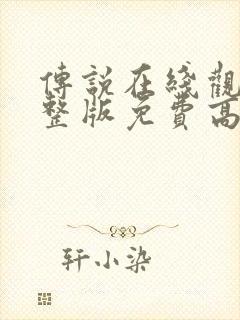 傳說在綫觀
整版免費高
轩小染